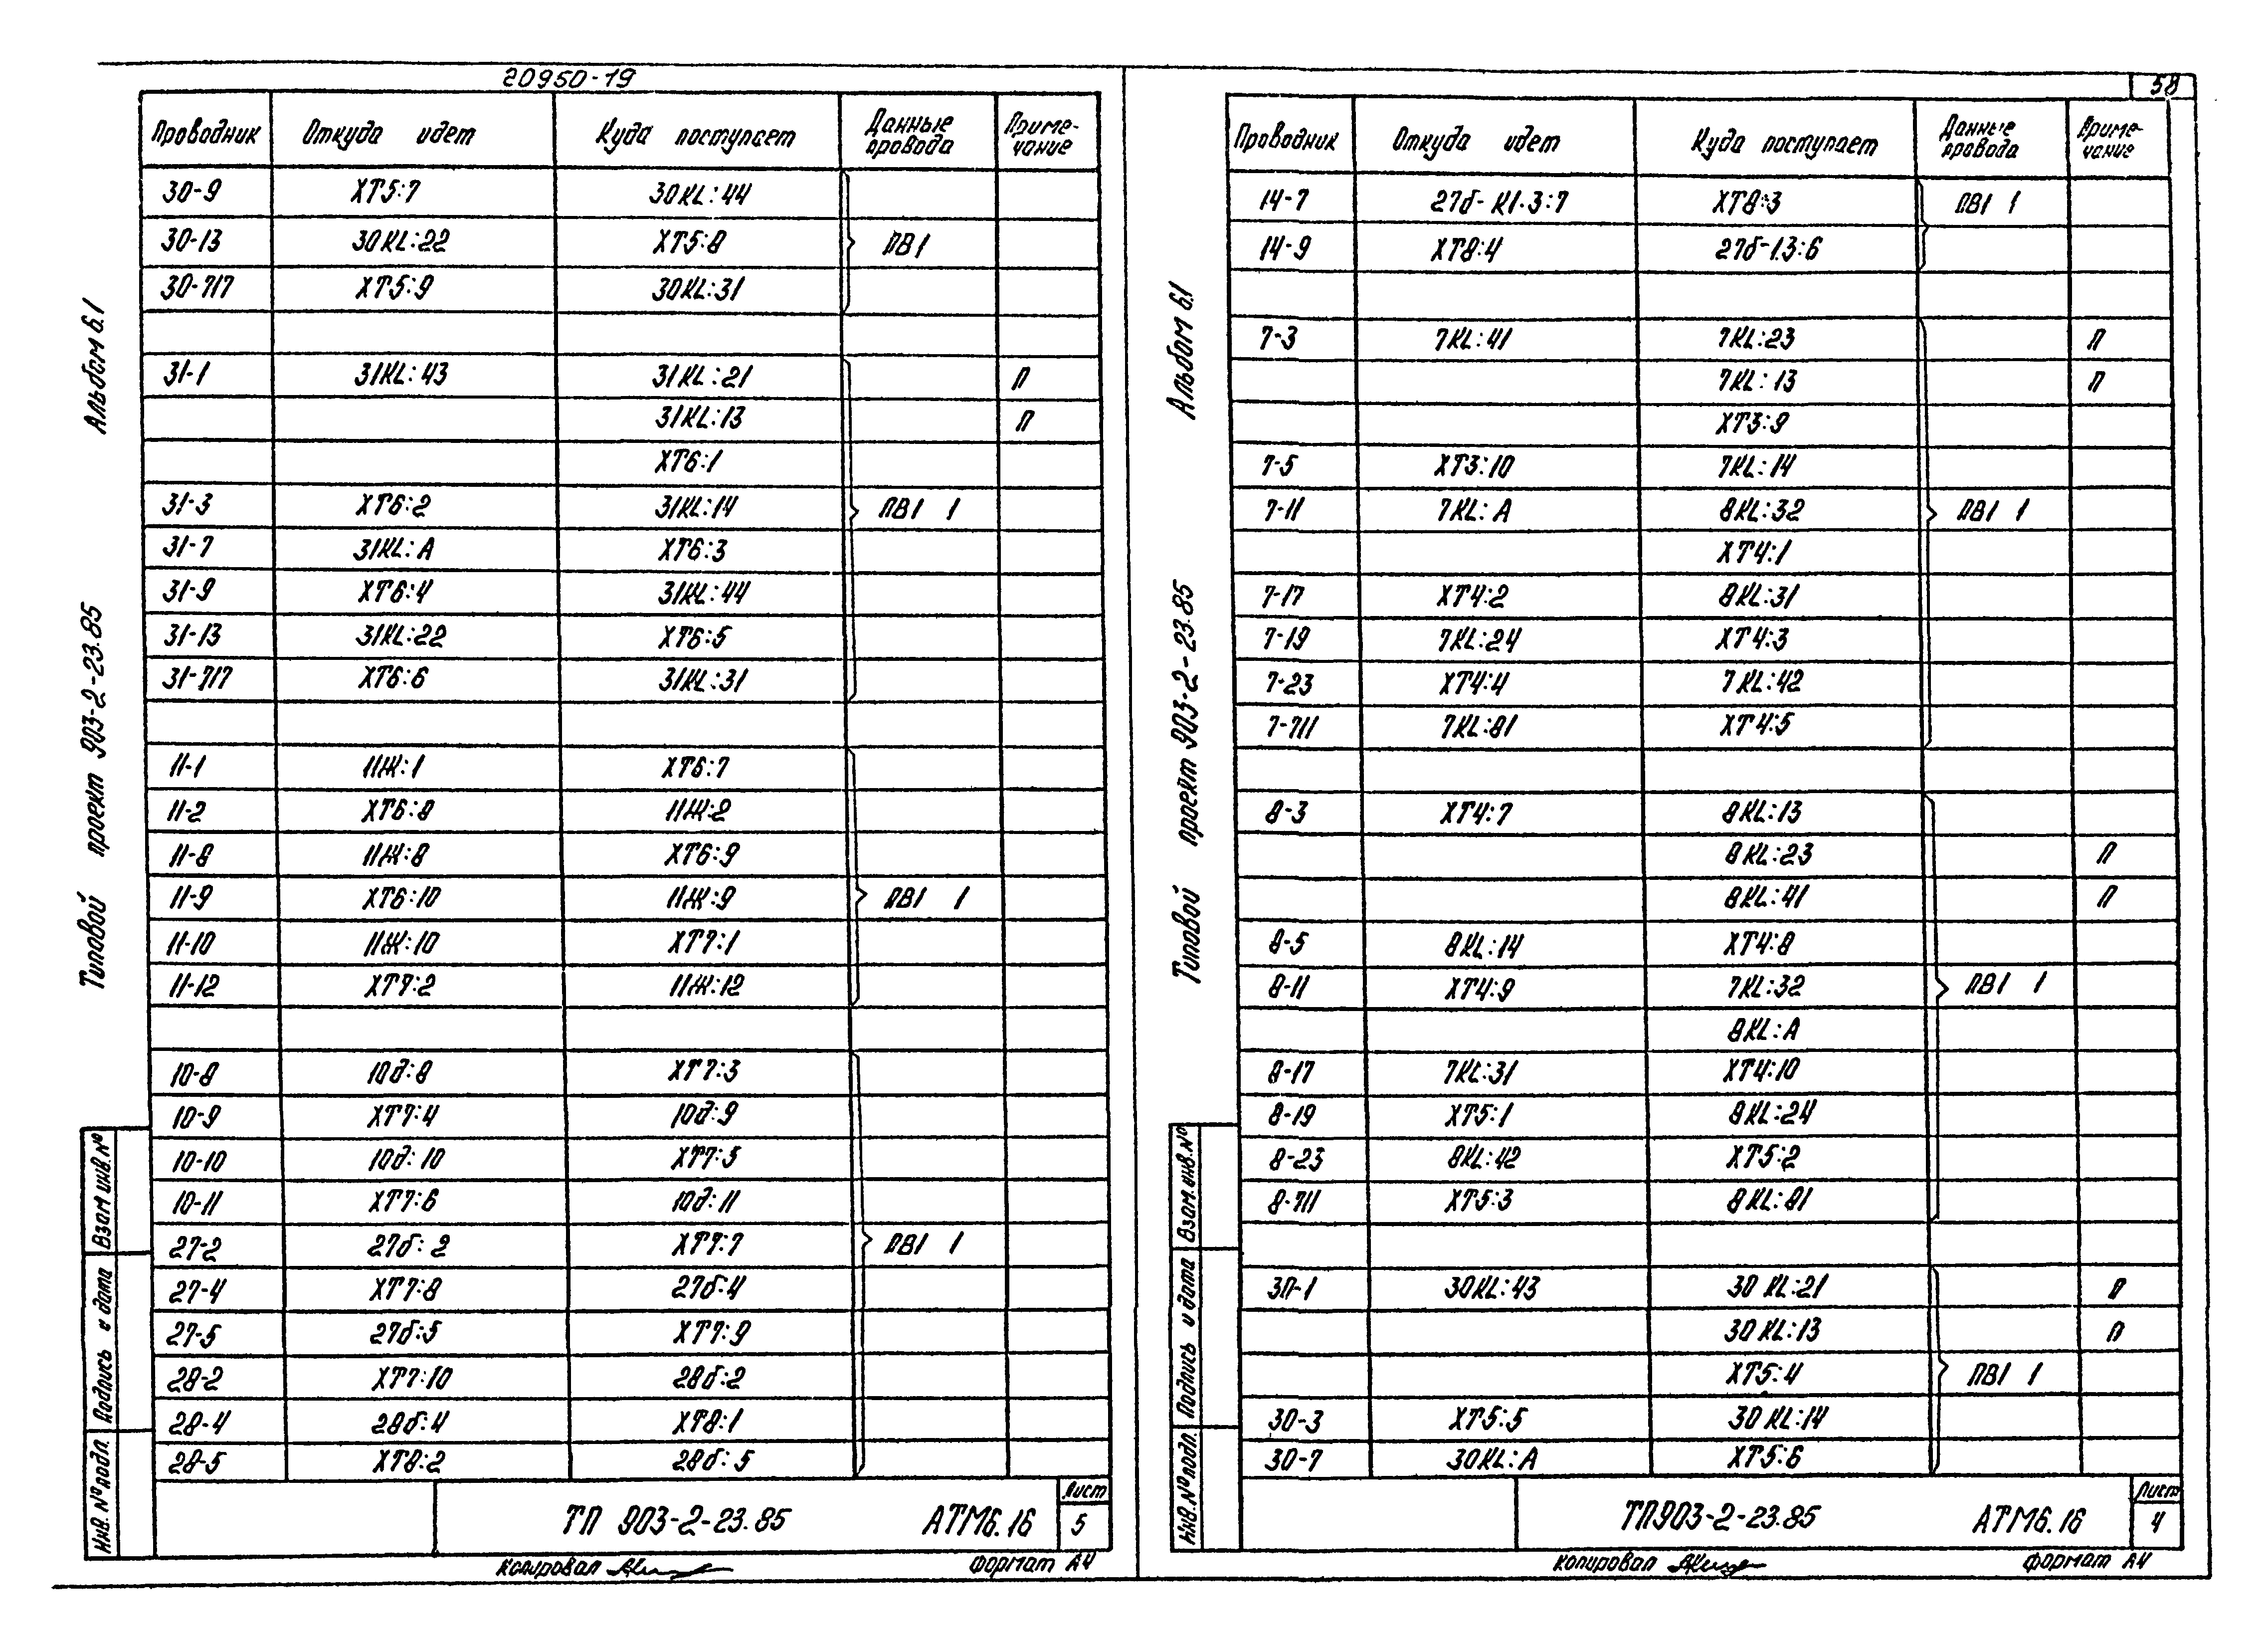 20950-19
Проводник Откуда идет Куда поступает Данные провода Приме-чание
30-9 ХТ5:7 30KL:44
30-13 30KL:22 ХТ5:8 ПВ1
30-717 ХТ5:9 30KL:31
31-1 31KL:43 31KL:21 П
31KL:13 П
ХТ6:1
31-3 ХТ6:2 31KL:14 ПВ1 1
31-7 31KL:А ХТ6:3
31-9 ХТ6:4 31KL:44
31-13 31KL:22 ХТ6:5
31-717 ХТ6:6 31KL:31
11-1 11Ж:1 ХТ6:7
11-2 ХТ6:8 11Ж:2
11-8 11Ж:8 ХТ6:9
11-9 ХТ6:10 11Ж:9 ПВ1 1
11-10 11Ж:10 ХТ7:1
11-12 ХТ7:2 11Ж:12
10-8 10д:8 ХТ7:3
10-9 ХТ7:4 10д:9
10-10 10д:10 ХТ7:5
10-11 ХТ7:6 10д:11
27-2 27б:2 ХТ7:7 ПВ1 1
27-4 ХТ7:8 27б:4
27-5 27б:5 ХТ7:9
28-2 ХТ7:10 28б:2
28-4 28б:4 ХТ8:1
28-5 ХТ8:2 28б:5
ТП 903-2-23.85 АТМ6.16 Лист 5
Копировал
Формат А4
Альбом 6.1
Типовой проект 903-2-23.85
Взам инв.№
Подпись и дата
Инв.№подл.
58
Проводник Откуда идет Куда поступает Данные провода Приме-чание
14-7 27б-К1.3:7 ХТ8:3 ПВ1 1
14-9 ХТ8:4 27б-1.3:6
7-3 7KL:41 7KL:23 П
7KL:13 П
ХТ3:9
7-5 ХТ3:10 7KL:14
7-11 7KL:А 8KL:32 ПВ1 1
ХТ4:1
7-17 ХТ4:2 8KL:31
7-19 7KL:24 ХТ4:3
7-23 ХТ4:4 7KL:42
7-711 7KL:81 ХТ4:5
8-3 ХТ4:7 8KL:13
8KL:23 П
8KL:41 П
8-5 8KL:14 ХТ4:8
8-11 ХТ4:9 7KL:32 ПВ1 1
8KL:А
8-17 7KL:31 ХТ4:10
8-19 ХТ5:1 8KL:24
8-23 8KL:42 ХТ5:2
8-711 ХТ5:3 8KL:81
30-1 30KL:43 30KL:21 П
30KL:13 П
ХТ5:4 ПВ1 1
30-3 ХТ5:5 30KL:14
30-7 30KL:А ХТ5:6
ТП903-2-23.85 АТМ6.16 Лист 4
Копировал
Формат А4
Альбом 6.1
Типовой проект 903-2-23.85
Взам.инв.№
Подпись и дата
Инв.№подл.